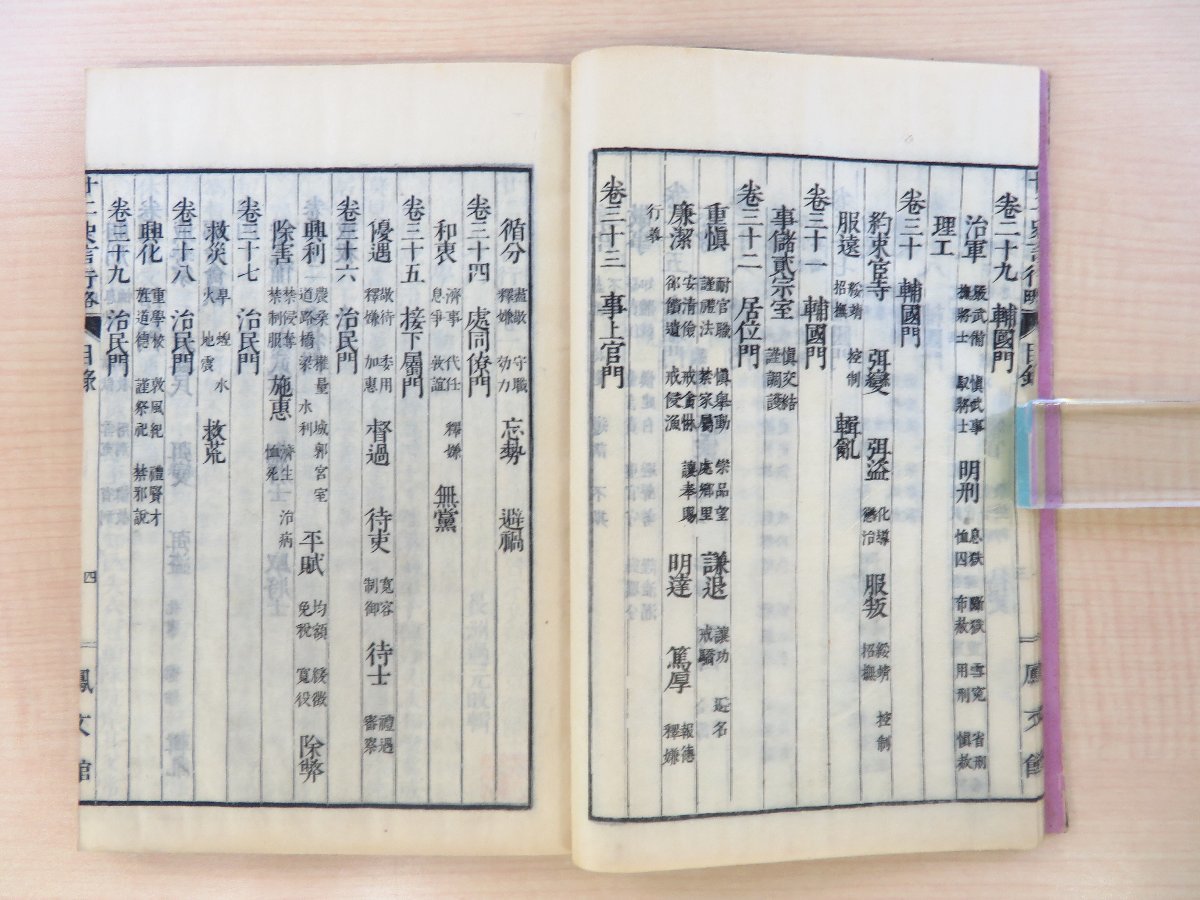 卷二十九 輔國門
治軍 嚴武衞 撫將士 愼武事 馭將士 明刑 息獄 恤囚 斷獄 布赦 雪寃 用刑 省刑 愼赦
理工
卷三十 輔國門
約束宦寺 弭變 弭盜 化導 懲治 服叛 綏靖 招撫 控制
服遠 綏靖 招撫 控制 輯亂
卷三十一 輔國門
事儲貳宗室 愼交結 謹調護
卷三十二 居位門
重愼 耐官職 謹禮法 愼舉動 禁家屬 崇品望 處鄉里 謙退 讓功 戒驕 遜名
廉潔 安清儉 卻餽遺 戒貪惏 戒侵漁 讓奉賜 明達 篤厚 報德 釋嫌
行義
卷三十三 事上官門
循分 盡敬 釋嫌 守職 効力 忘勢 避禍
卷三十四 處同僚門
和衷 濟事 息爭 代任 敦誼 釋嫌 無黨
卷三十五 接下屬門
優遇 敬待 釋嫌 委用 加惠 督過 待吏 寬容 制御 待士 禮遇 審察
卷三十六 治民門
興利 農桑 道路橋梁 權量 水利 城郭宮室 平賦 均額 免稅 緩徵 寬役 除弊
除害 禁侵奪 禁制服 施惠 濟生 恤死 治病
卷三十七 治民門
救災 旱 火 蝗 地震 水 救荒
卷三十八 治民門
興化 重學校 旌道德 敦風紀 謹祭祀 禮賢才 禁邪說
卷三十九 治民門
廿二史言行略 目錄 四 鳳文館